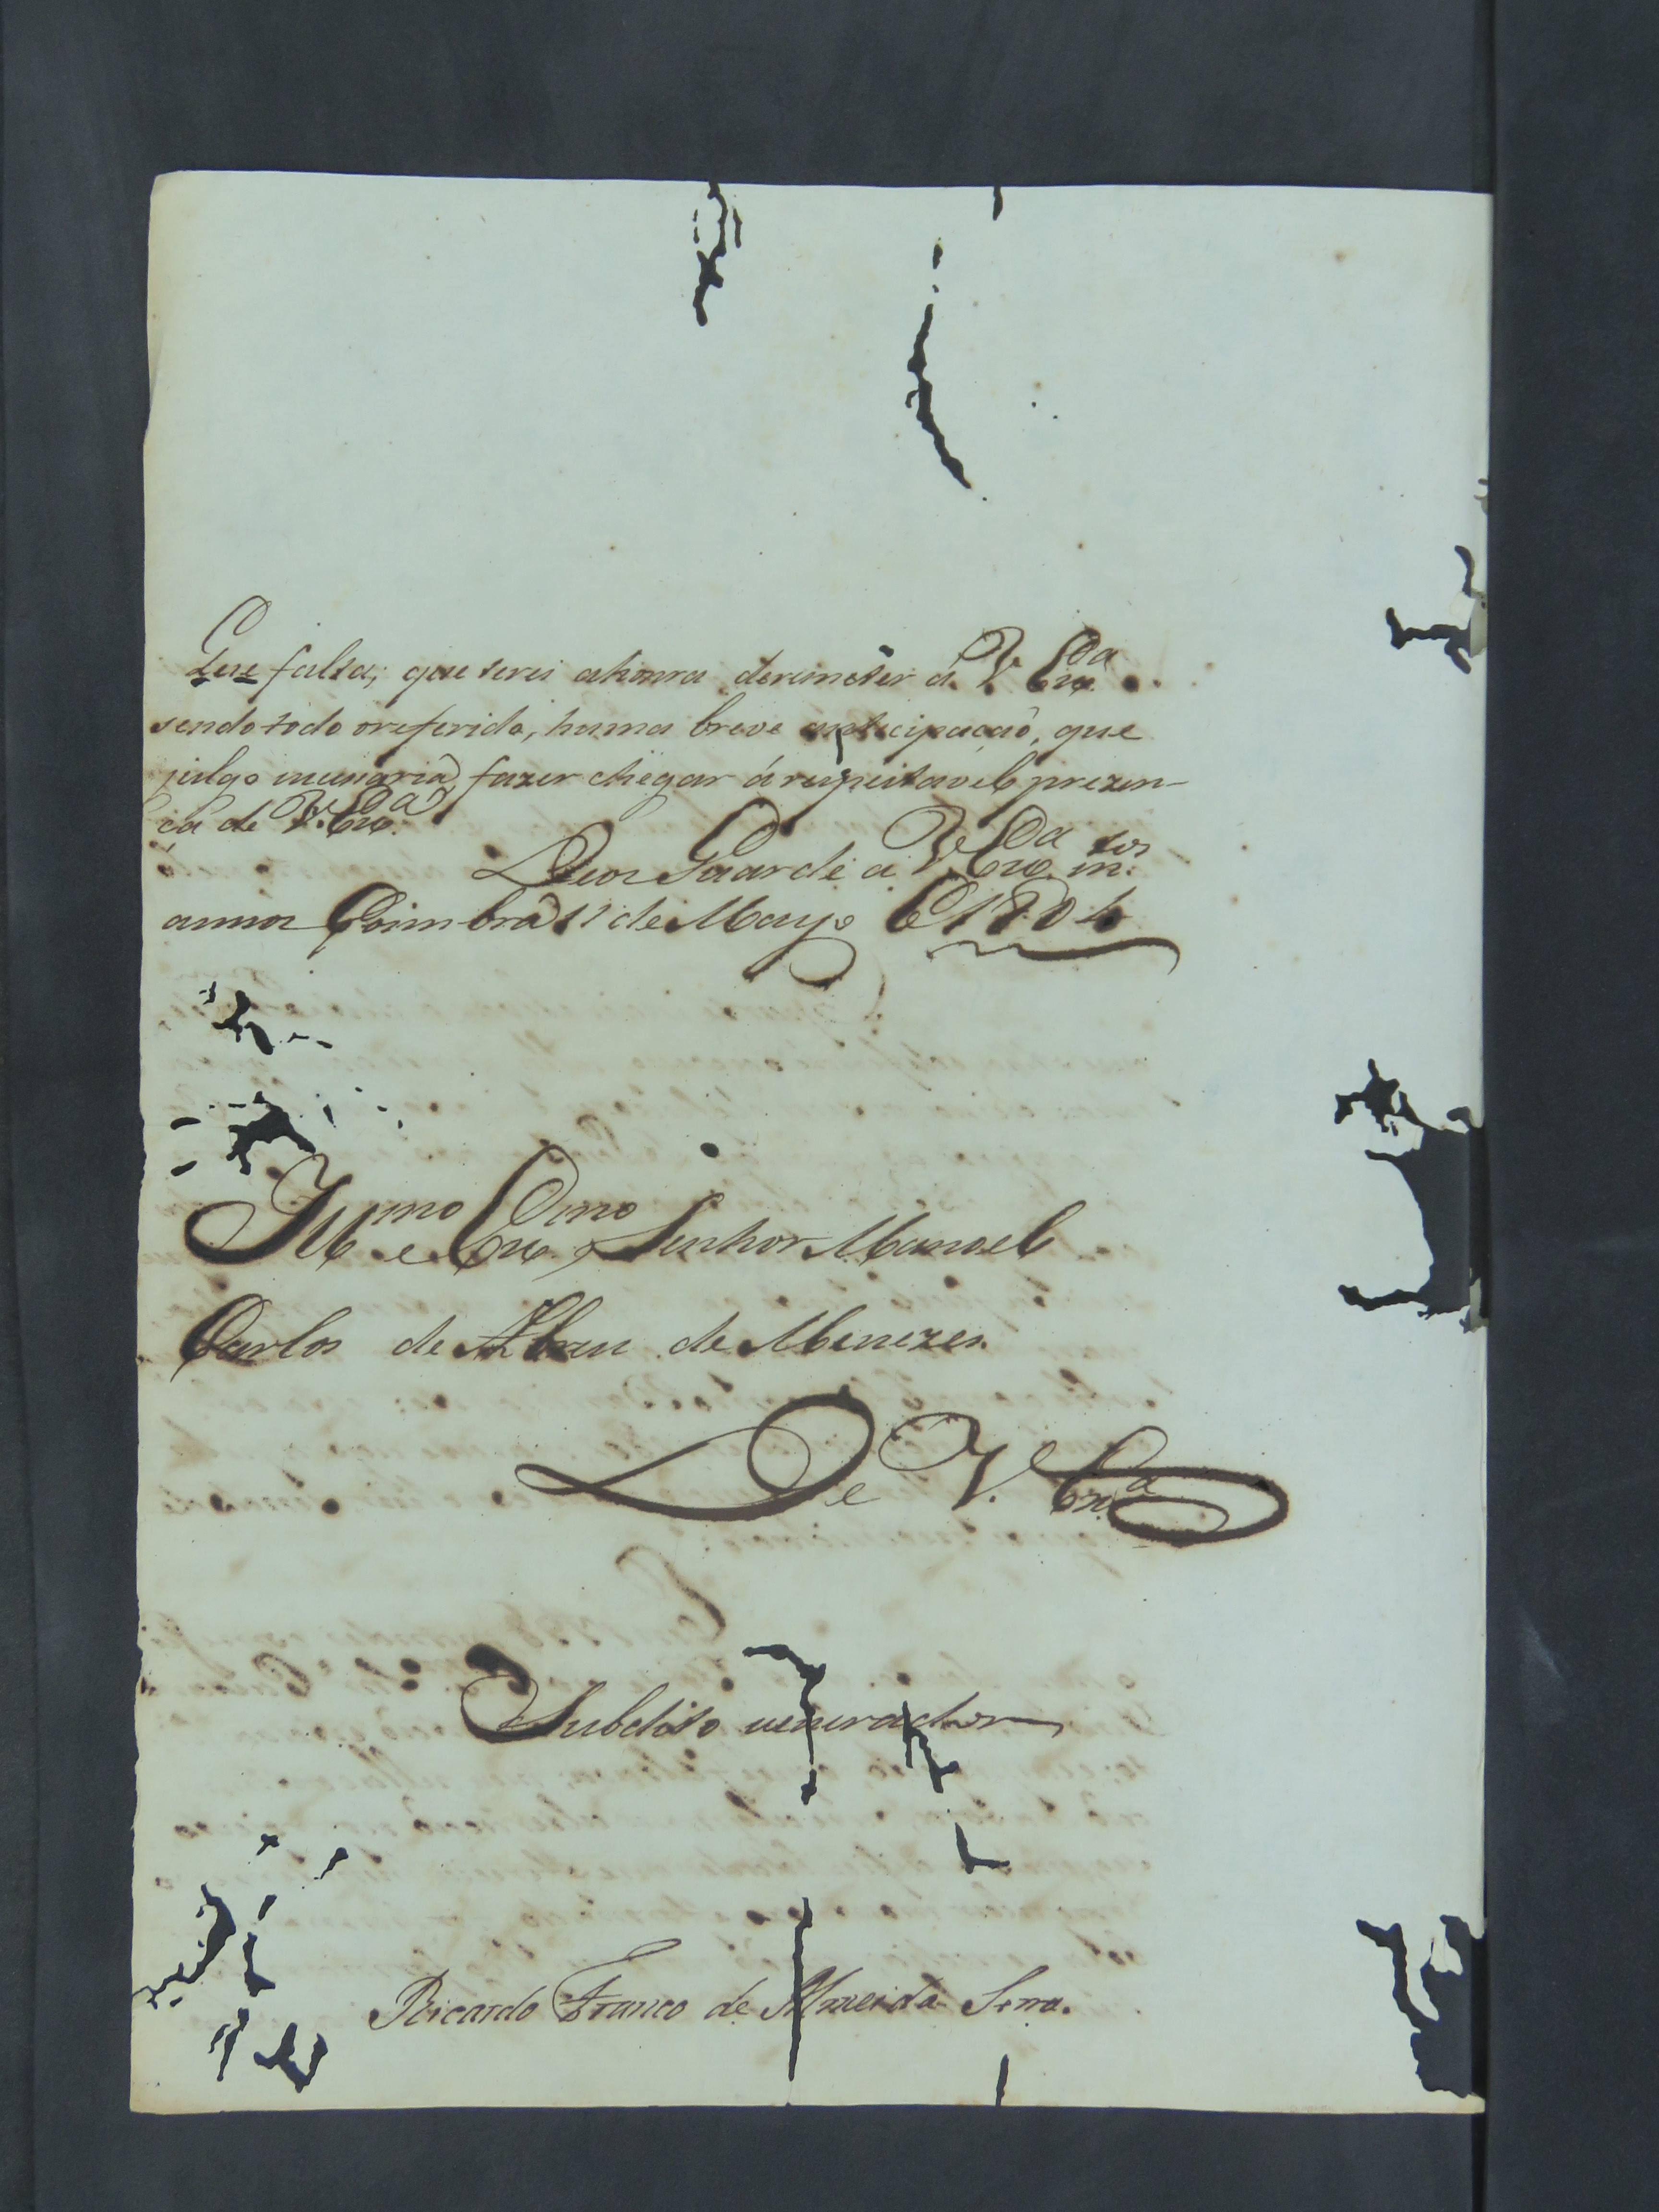 que falta; que terei ahonra deremeter á V. Ex.ª
sendo todo oreferido, huma breve anticipação, que
julgo necessaria fazer chegar á respeitavel prezen-
ça de V. Ex.ª
Deos Guarde a V. Ex.ª m.tos
annos Coimbra 1º de Mayo de 1804
Ill.mo e Ex.mo Senhor Manoel
Carlos de Abreu de Menezes.
De V. Ex.ª
Subdito venerador
Ricardo Franco de Almeida Serra.